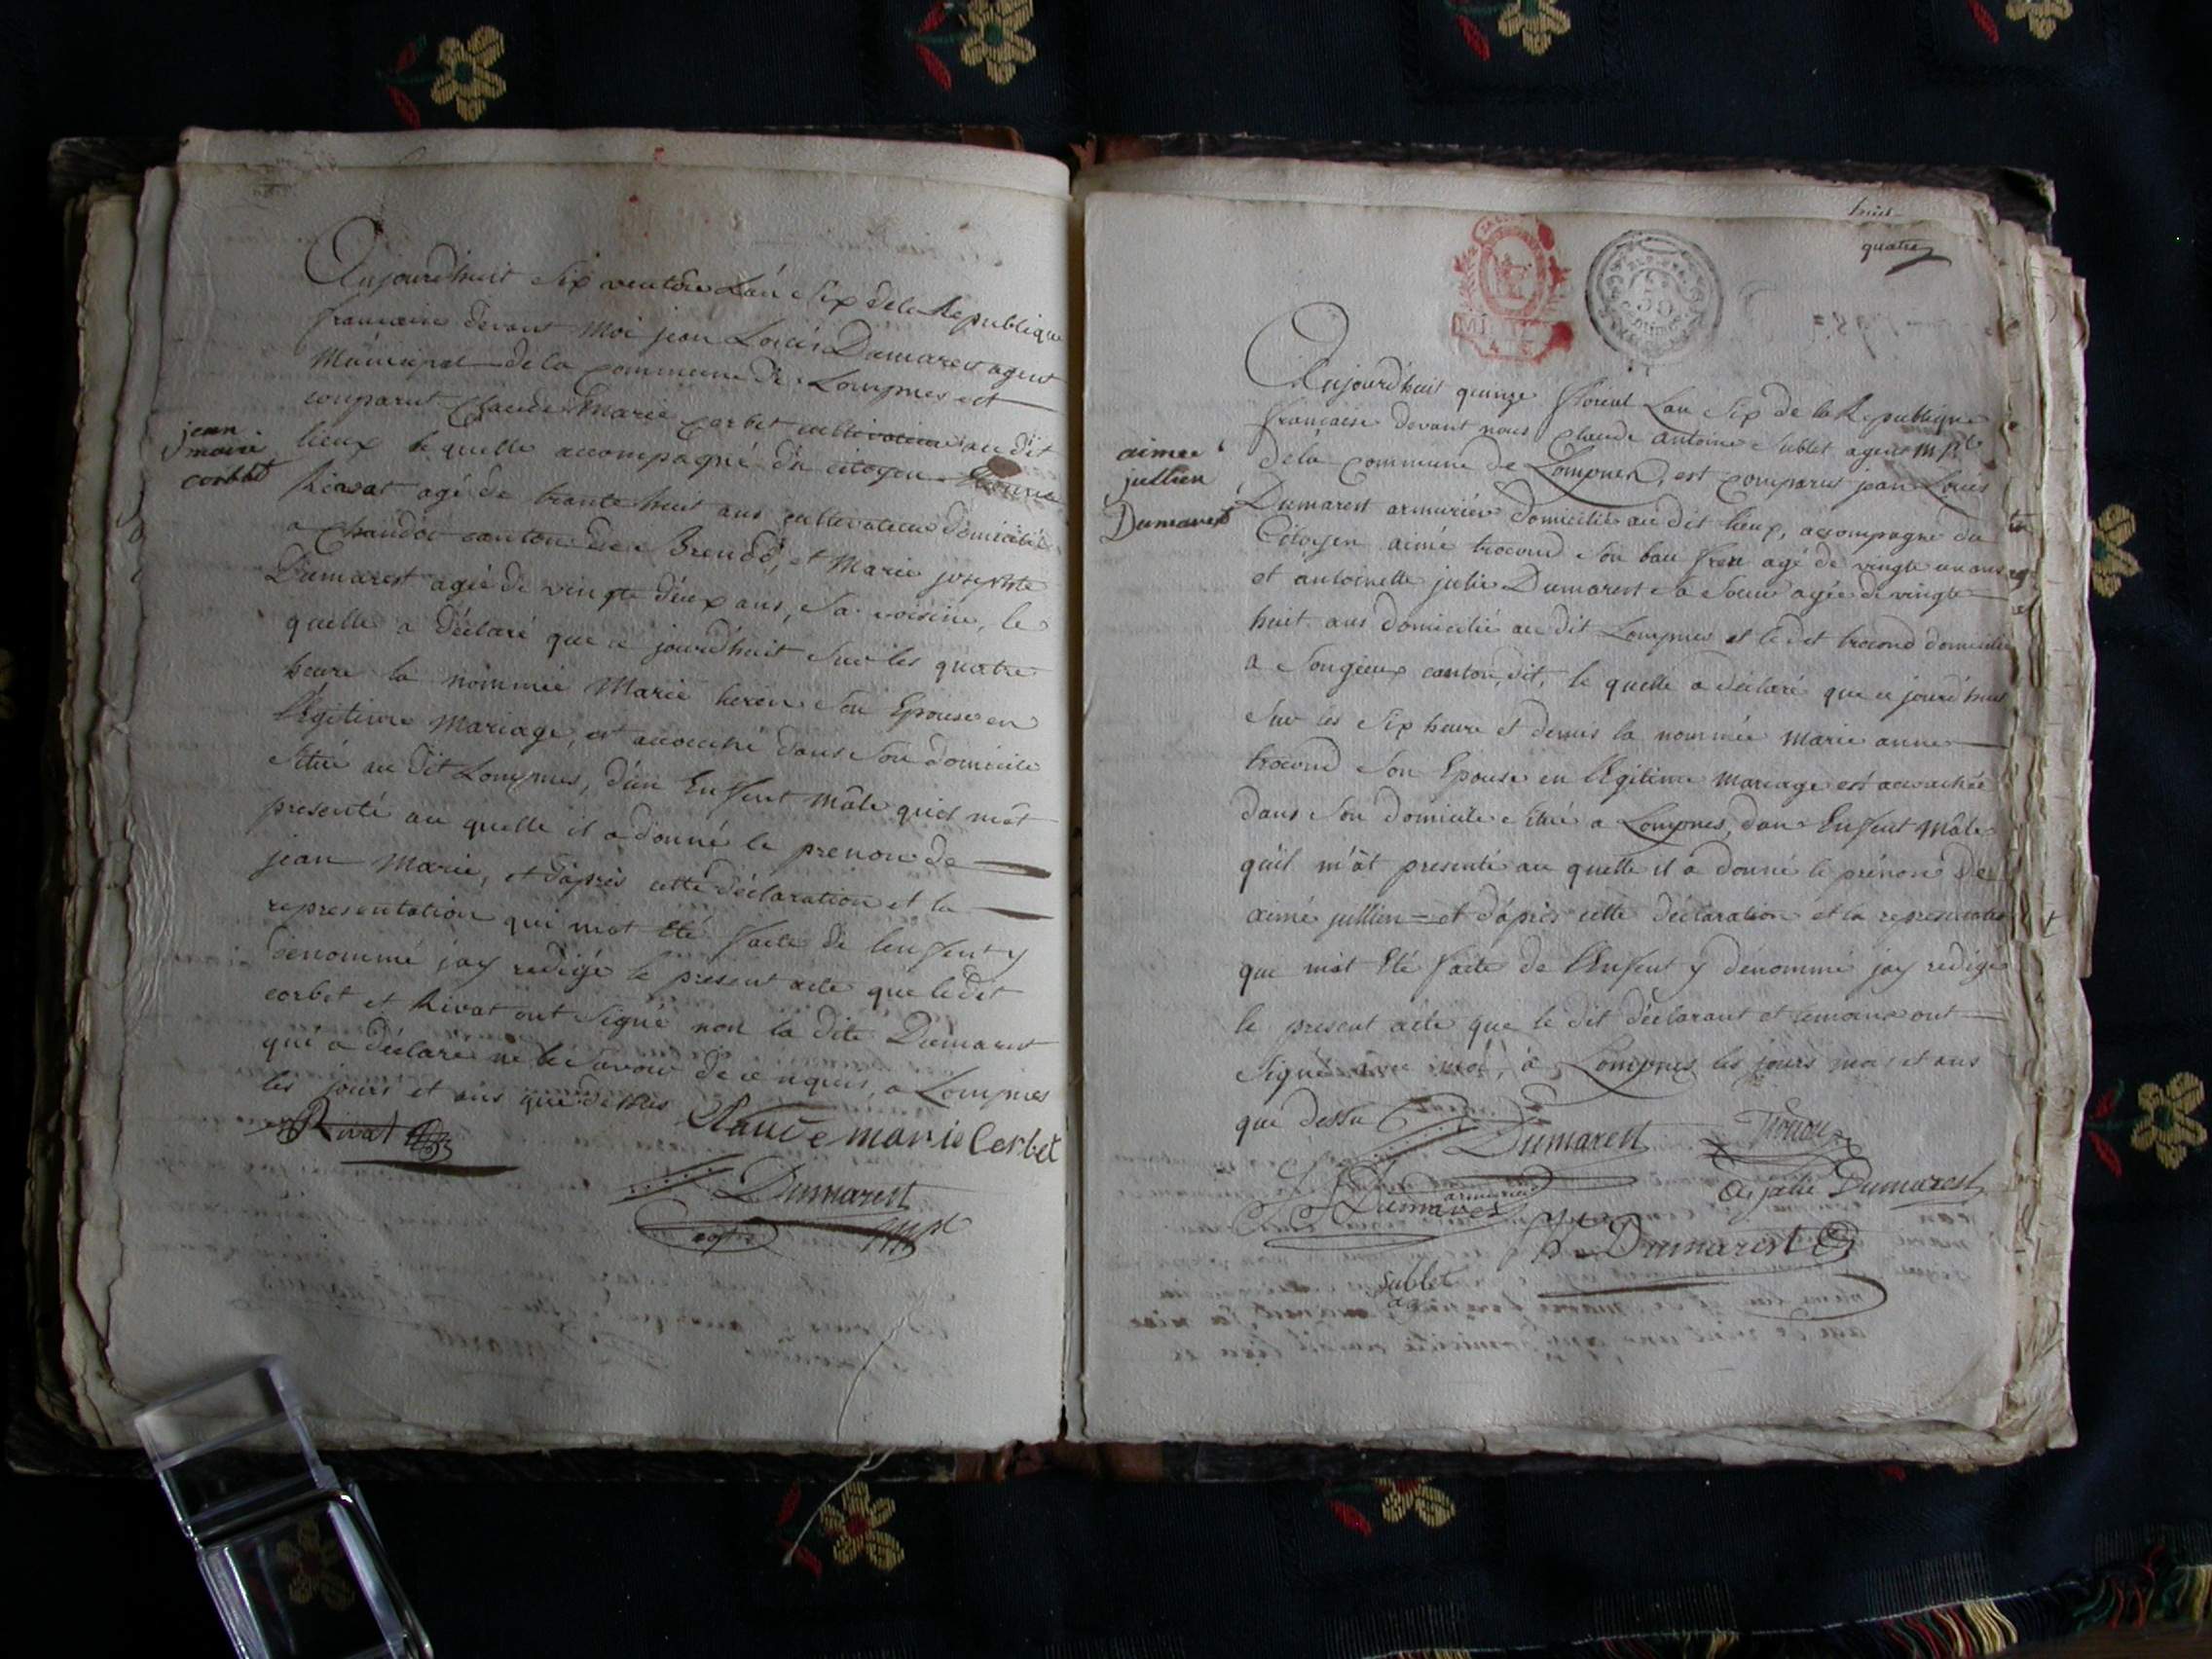 Aujourdhuit Six ventôse Lan Six de la Republique
francaise devant Moi jean Loüis Dumarest agent
Municipal de la commune de Lompnes est
comparut Claude Marie Corbet cultivateur au dit
jean
marie
corbet
lieux le quelle accompagné du citoyen
Rivat agé de trante huit ans cultivateur domicilié
a Chandor canton de Brenod, et Marie josephte
Dumarest agée de vingte deux ans, Sa voisine, le
quelle a déclaré que ce jourdhuit Sur les quatre
heure la nommée Marie heren Son Epouse en
légitime Mariage, et accouché dans Son domicile
Situé au dit Lompnes, d'un Enfent mâle quil m'at
presenté au quelle il a donné le prenon de
jean Marie, et d'après cette déclaration et la
representation qui m'at Eté faite de lenfent y
denommé jay redigé le present acte que le dit
corbet et Rivat ont Signé non la dite Dumarest
qui a déclaré ne le Savoir de ce requis, a Lompnes
les jours et ans que dessus
Claude marie Corbet
Rivat
Dumarest
agt
mpl
huit
quatre
50
Aujourd'huit quinze floréal Lan Six de la Republique
francaise devant nous Claude antoine Sublet agent Mpl
aimee
jullien
Dumarest
de la Commune de Lompnes, est comparus jean Loüis
Dumarest armurier domicilié au dit lieux, accompagné du
Citoyen aimé trocond Son bau frere agé de vingte un ans
et antoinette julie Dumarest Sa Soeur agée de vingte
huit ans domicilié au dit Lompnes et le dit trocond domicilié
a Songieux canton, dit, le quelle a déclaré que ce jourd'huit
Sur les Six heure et demis la nommée marie anne
trocond Son Epouse en légitime mariage est accouchée
dans Son domicile Situé a Lompnes, dun Enfent mâle
quil m'àt presenté au quelle il a donné le prénon De
aimé jullien = et d'après cette déclaration et la representation
que m'at Eté faite de l'Enfent y dénommé jay redigé
le present acte que le dit déclarant et temoins ont
Signé avec moi, à Lompnes les jours mois et ans
que dessu
Dumarest
Trocon
julie Dumarest
armurier
Dumarest
Dumarest
Sublet
ag